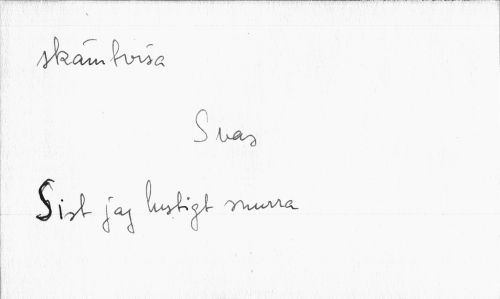 skämtvisa
Svas
Sist jag lustigt snurra